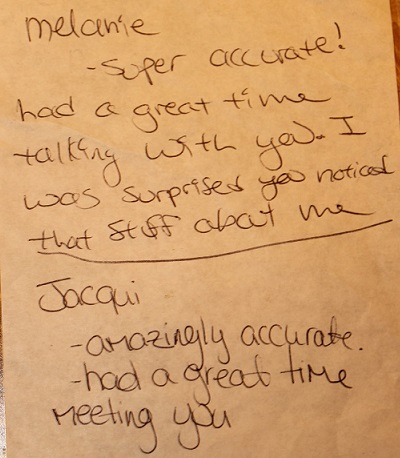 melanie
-Super accurate!
had a great time
talking with you. I
was surprised you noticed
that stuff about me
Jacqui
-amazingly accurate.
-had a great time
meeting you